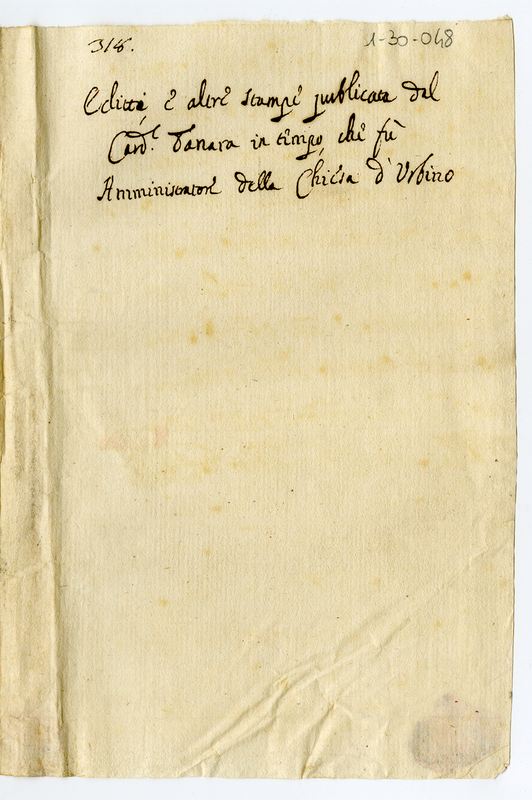 318.
1-30-048
Editti e altre stampe publicate dal
Card.l Tanara in tempo, che fù
Amministratore della Chiesa d'Urbino